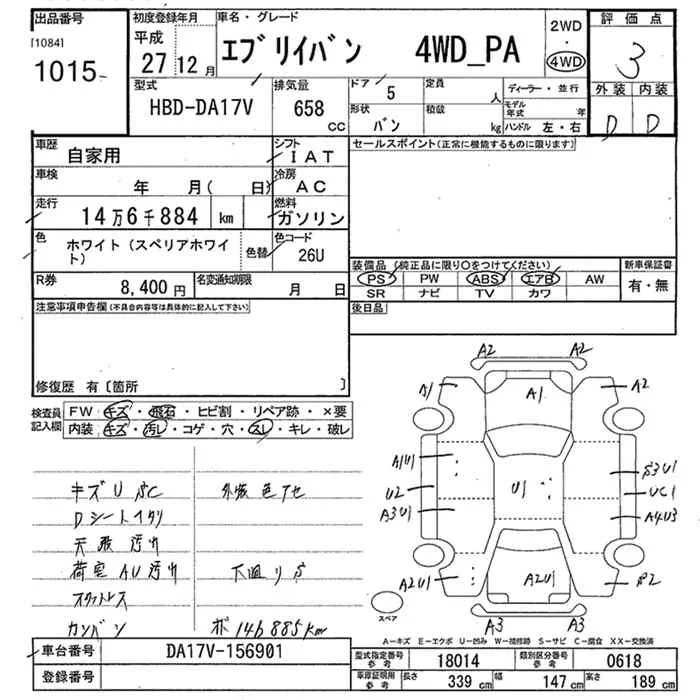 出品番号
[1084]
1015
初度登録年月
平成
27 12 月
車名・グレード
エブリイバン 4WD_PA
2WD
・
4WD
評価点
3
外装 内装
D D
型式
HBD-DA17V
排気量
658
CC
ドア 5
形状 バン
定員 人
積載 kg
ディーラー・並行
モデル年式 年
ハンドル 左・右
車歴 自家用
シフト IAT
車検 年 月( 日)
冷房 AC
走行 14万6千884 km
燃料 ガソリン
色 ホワイト (スペリアホワイト)
色替
色コード 26U
R券 8,400円
名変通知期限 月 日
セールスポイント(正常に機能するものに限ります)
装備品(純正品に限り○をつけてください)
PS PW ABS エアB AW
SR ナビ TV カワ
新車保証書
有・無
後日品
注意事項申告欄(不具合内容等は具体的に記入して下さい)
修復歴 有〔箇所 〕
検査員記入欄
FW キズ・飛石・ヒビ割・リペア跡・×要
内装 キズ・汚レ・コゲ・穴・スレ・キレ・破レ
キズU SC 外板色アセ
Dシートイタリ
天張汚れ
荷室AU汚れ 下廻りS
スタットレス
カンバン ポ 146885km
A2 A2
A1 A1 A2
A1U1 S3U1
U2 U1 UC1
A3U1 A4U3
A2U1 A2U1 S2
A3 A3
スペア
A-キズ E-エクボ U-凹み W-補修跡 S-サビ C-腐食 XX-交換済
車台番号 DA17V-156901
登録番号
型式指定番号 参考 18014
類別区分番号 参考 0618
車庫証明用 参考 長さ 339 cm 幅 147 cm 高さ 189 cm